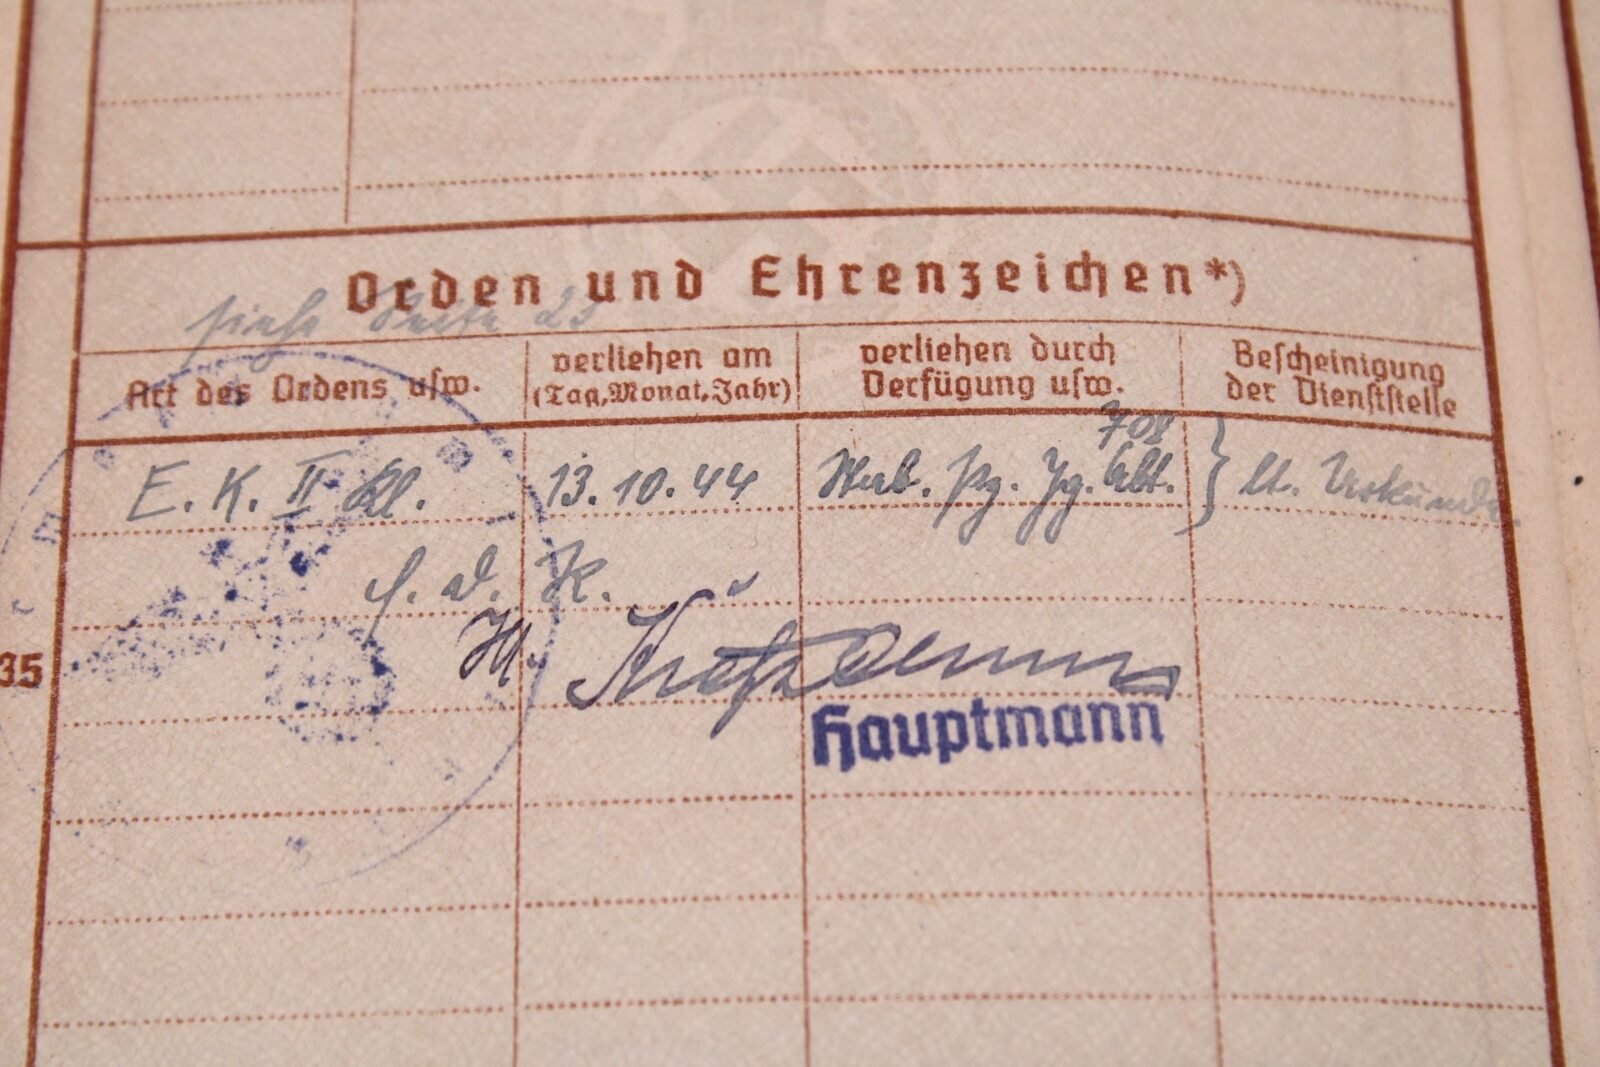 Orden und Ehrenzeichen*)
siehe Seite 23
Art des Ordens usw.
verliehen am
(Tag, Monat, Jahr)
verliehen durch
Verfügung usw.
Bescheinigung
der Dienststelle
708
E. K. II Kl.
13.10.44
Pz. Jg. Abt. }
lt. Urkunde
f. d. R.
35
Hauptmann